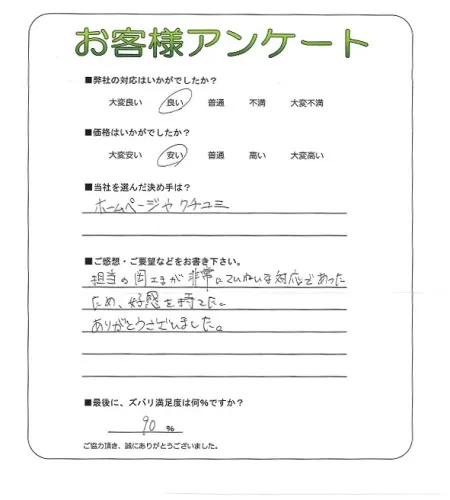 お客様アンケート
■弊社の対応はいかがでしたか？
大変良い 良い 普通 不満 大変不満
■価格はいかがでしたか？
大変安い 安い 普通 高い 大変高い
■当社を選んだ決め手は？
ホームページや クチコミ
■ご感想・ご要望などをお書き下さい。
担当の岡エまが非常にていねいな対応であった
ため、好感を持てた。
ありがとうございました。
■最後に、ズバリ満足度は何％ですか？
90 ％
ご協力頂き、誠にありがとうございました。